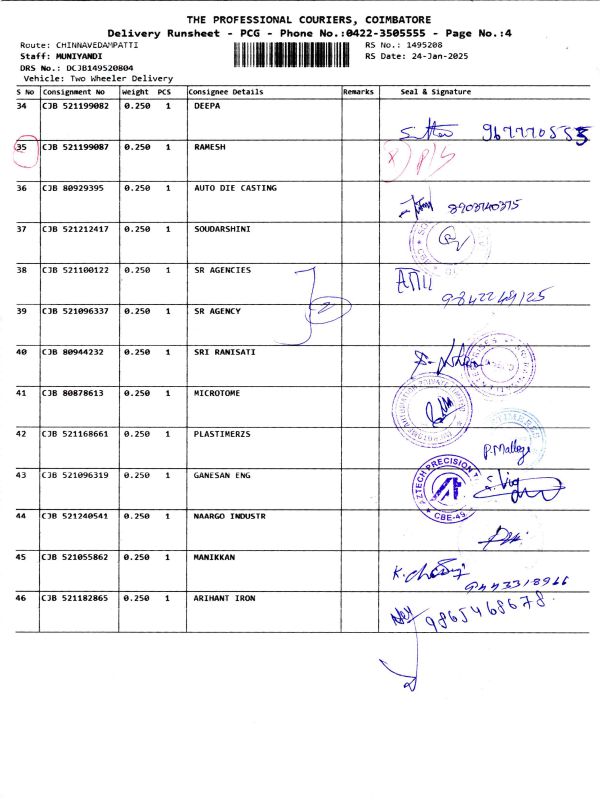 THE PROFESSIONAL COURIERS, COIMBATORE
Delivery Runsheet - PCG - Phone No.:0422-3505555 - Page No.:4
Route: CHINNAVEDAMPATTI RS No.: 1495208
Staff: MUNIYANDI RS Date: 24-Jan-2025
DRS No.: DCJB149520804
Vehicle: Two Wheeler Delivery
S No Consignment No Weight PCS Consignee Details Remarks Seal & Signature
34 CJB 521199082 0.250 1 DEEPA
9677770555
35 CJB 521199087 0.250 1 RAMESH
36 CJB 80929395 0.250 1 AUTO DIE CASTING
8903740375
37 CJB 521212417 0.250 1 SOUDARSHINI
38 CJB 521100122 0.250 1 SR AGENCIES
9842249125
39 CJB 521096337 0.250 1 SR AGENCY
2
40 CJB 80944232 0.250 1 SRI RANISATI
41 CJB 80878613 0.250 1 MICROTOME
42 CJB 521168661 0.250 1 PLASTIMERZS
43 CJB 521096319 0.250 1 GANESAN ENG
AZTECH PRECISION
CBE-49
44 CJB 521240541 0.250 1 NAARGO INDUSTR
45 CJB 521055862 0.250 1 MANIKKAN
9443318966
46 CJB 521182865 0.250 1 ARIHANT IRON
9865468678